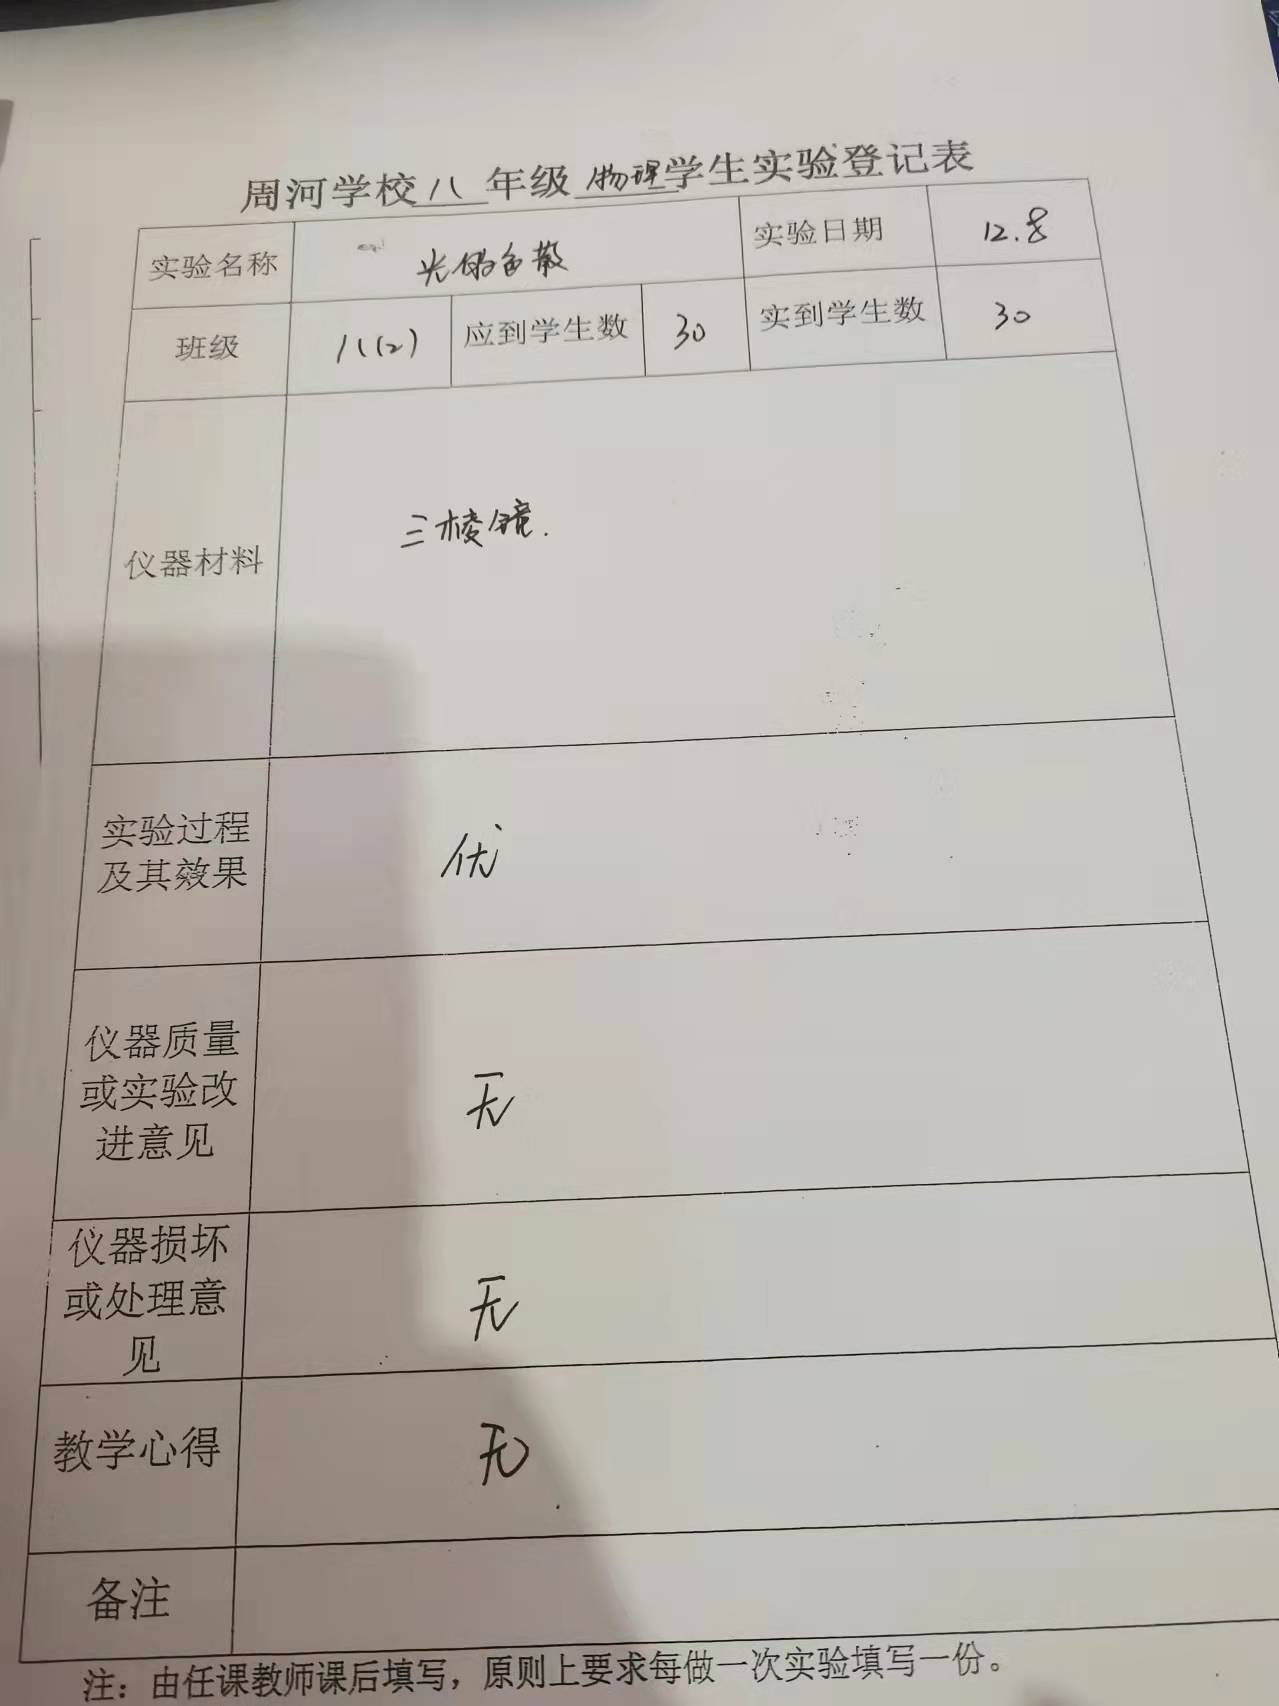 周河学校八年级物理学生实验登记表
实验名称 光的色散 实验日期 12.8
班级 八(2) 应到学生数 30 实到学生数 30
仪器材料 三棱镜.
实验过程
及其效果
优
仪器质量
或实验改
进意见
无
仪器损坏
或处理意
见
无
教学心得 无
备注
注：由任课教师课后填写，原则上要求每做一次实验填写一份。